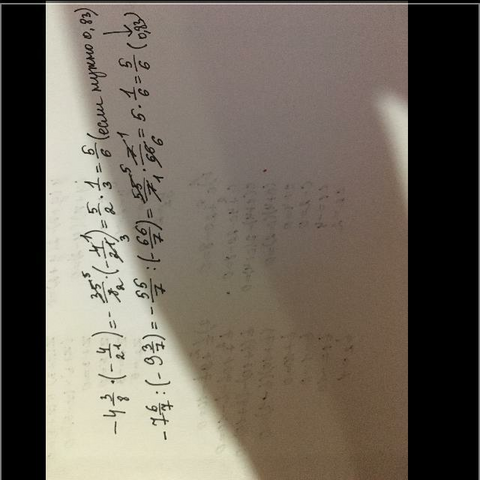 -4 3/8 · (- 4/21) = - 35⁵/8₂ · (- 4¹/21₃) = 5/2 · 1/3 = 5/6 (если нужно 0,83)
-7 6/7 : (- 9 3/7) = - 55/7 : (- 66/7) = 55⁵/7₁ · 7¹/66₆ = 5 · 1/6 = 5/6 (↓ 0,83)